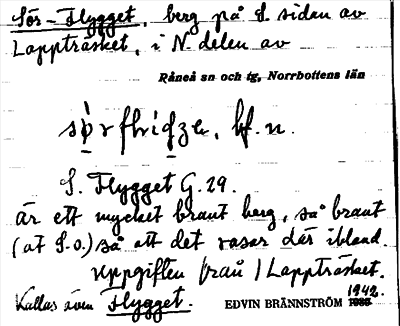 Sör-Flygget, berg på S. sidan av
Lappträsket, i N. delen av
Råneå sn och tg, Norrbottens län
bf. n.
S. Flygget G. 29.
är ett mycket brant berg, så brant
(åt S.O.) så att det rasar där ibland.
Uppgiften från 1 Lappträsket.
Kallas även Flygget.
EDVIN BRÄNNSTRÖM 1942.